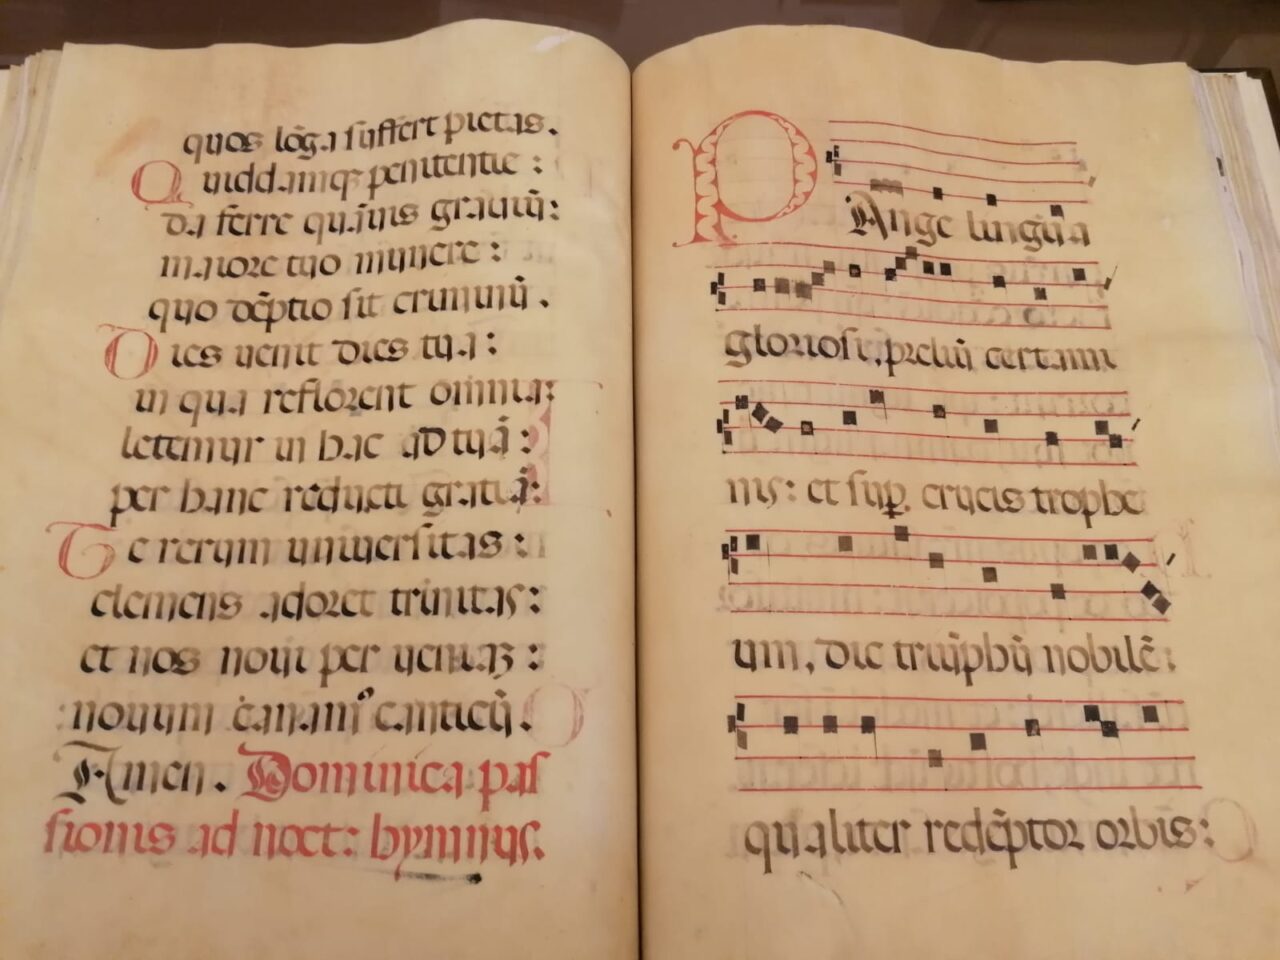 quos lōga suffert pietas.
Quiddamq; penitentie :
da ferre quāuis grauiū:
maiore tuo munere :
quo dēptio sit criminū.
Dies uenit dies tua :
in qua reflorent omnia:
letemur in hac ad tuā :
per hanc reducti gratiā:
Te rerum uniuersitas :
clemens adoret trinitas:
et nos noui per ueniaʒ :
nouum canamᵒ canticū.
Amen. Dominica pas
sionis ad noct: hymnus.
PAnge lingua
gloriosi, preliū certami
nis: et sup̱ crucis trophe
um, dic triūphū nobilē:
qualiter redēptor orbis: